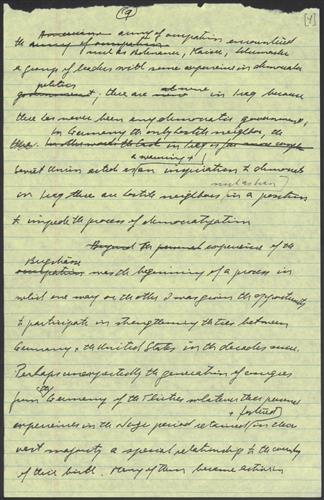 (9) [4]
the army of occupation encountered
such as Adenauer, Kaiser, Schumacher
a group of leaders with some experience in democratic
politics
government; there are none in Iraq because
there has never been any democratic government,
In Germany the only hostile neighbor, the
Soviet Union acted as an inspiration to democrats
in Iraq there are hostile neighbors in a position
to impede the process of democratization
Beyond the personal experience of the
was the beginning of a process in
which one way or the other I was given the opportunity
to participate in strengthening the ties between
Germany & the United States in the decades since.
Perhaps unexpectedly the generation of emigres
from the Germany of the Thirties whatever their personal
& familial
experiences in the Nazi period retained in their
vast majority a special relationship to the country
of their birth. Many of them became active in